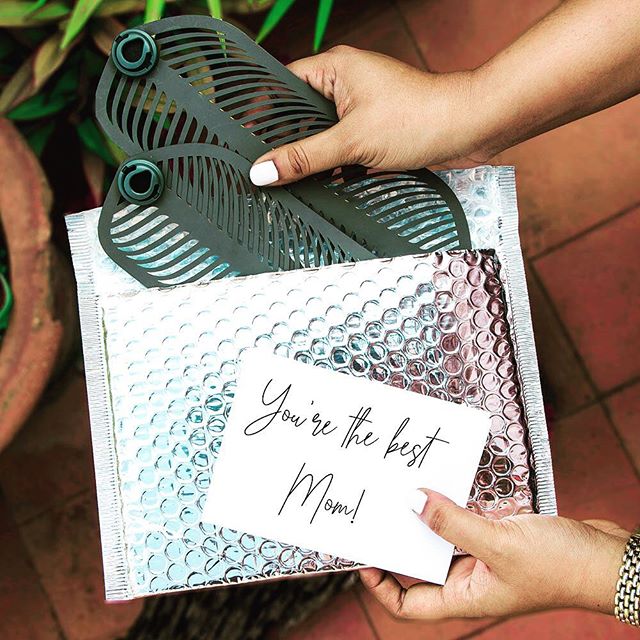 You're the best
Mom!